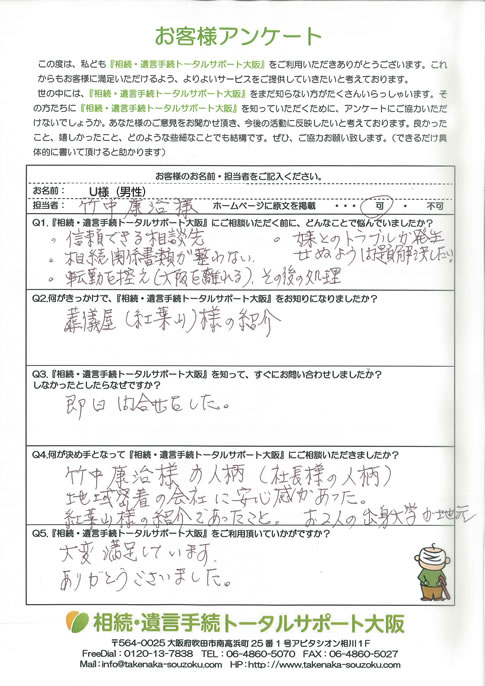 お客様アンケート
この度は、私ども『相続・遺言手続トータルサポート大阪』をご利用いただきありがとうございます。これ
からもお客様に満足いただけるよう、よりよいサービスをご提供していきたいと考えております。
世の中には、『相続・遺言手続トータルサポート大阪』をまだ知らない方がたくさんいらっしゃいます。そ
の方たちに『相続・遺言手続トータルサポート大阪』を知っていただくために、アンケートにご協力いただ
けないでしょうか。あなた様のご意見をお聞かせ頂き、今後の活動に反映したいと考えております。良かった
こと、嬉しかったこと、どのような些細なことでも結構です。ぜひ、ご協力お願い致します。（できるだけ具
体的に書いて頂けると助かります）
お客様のお名前・担当者をご記入ください。
お名前： U様（男性）
担当者： 竹中康治様 ホームページに原文を掲載 ・・・ 可 ・ 不可
Q1.『相続・遺言手続トータルサポート大阪』にご相談いただく前に、どんなことで悩んでいましたか？
。信頼できる相談先
。相続関係書類が整わない。
。転勤を控え（大阪を離れる）、その後の処理
。妹とのトラブルが発生
せぬよう解決したい。
Q2.何がきっかけで、『相続・遺言手続トータルサポート大阪』をお知りになりましたか？
葬儀屋（紅葉山）様の紹介
Q3.『相続・遺言手続トータルサポート大阪』を知って、すぐにお問い合わせしましたか？
しなかったとしたらなぜですか？
即日問合せをした。
Q4.何が決め手となって『相続・遺言手続トータルサポート大阪』にご相談いただきましたか？
竹中康治様の人柄（社長様の人柄）
地域密着の会社に安心感があった。
紅葉山様の紹介であったこと。お2人の出身大学が地元
Q5.『相続・遺言手続トータルサポート大阪』をご利用頂いていかがですか？
大変満足しています。
ありがとうございました。
相続・遺言手続トータルサポート大阪
〒564-0025 大阪府吹田市南高浜町25番1号アピタシオン相川1F
FreeDial：0120-13-7838 TEL：06-4860-5070 FAX：06-4860-5027
Mail：info@takenaka-souzoku.com HP：http://www.takenaka-souzoku.com/